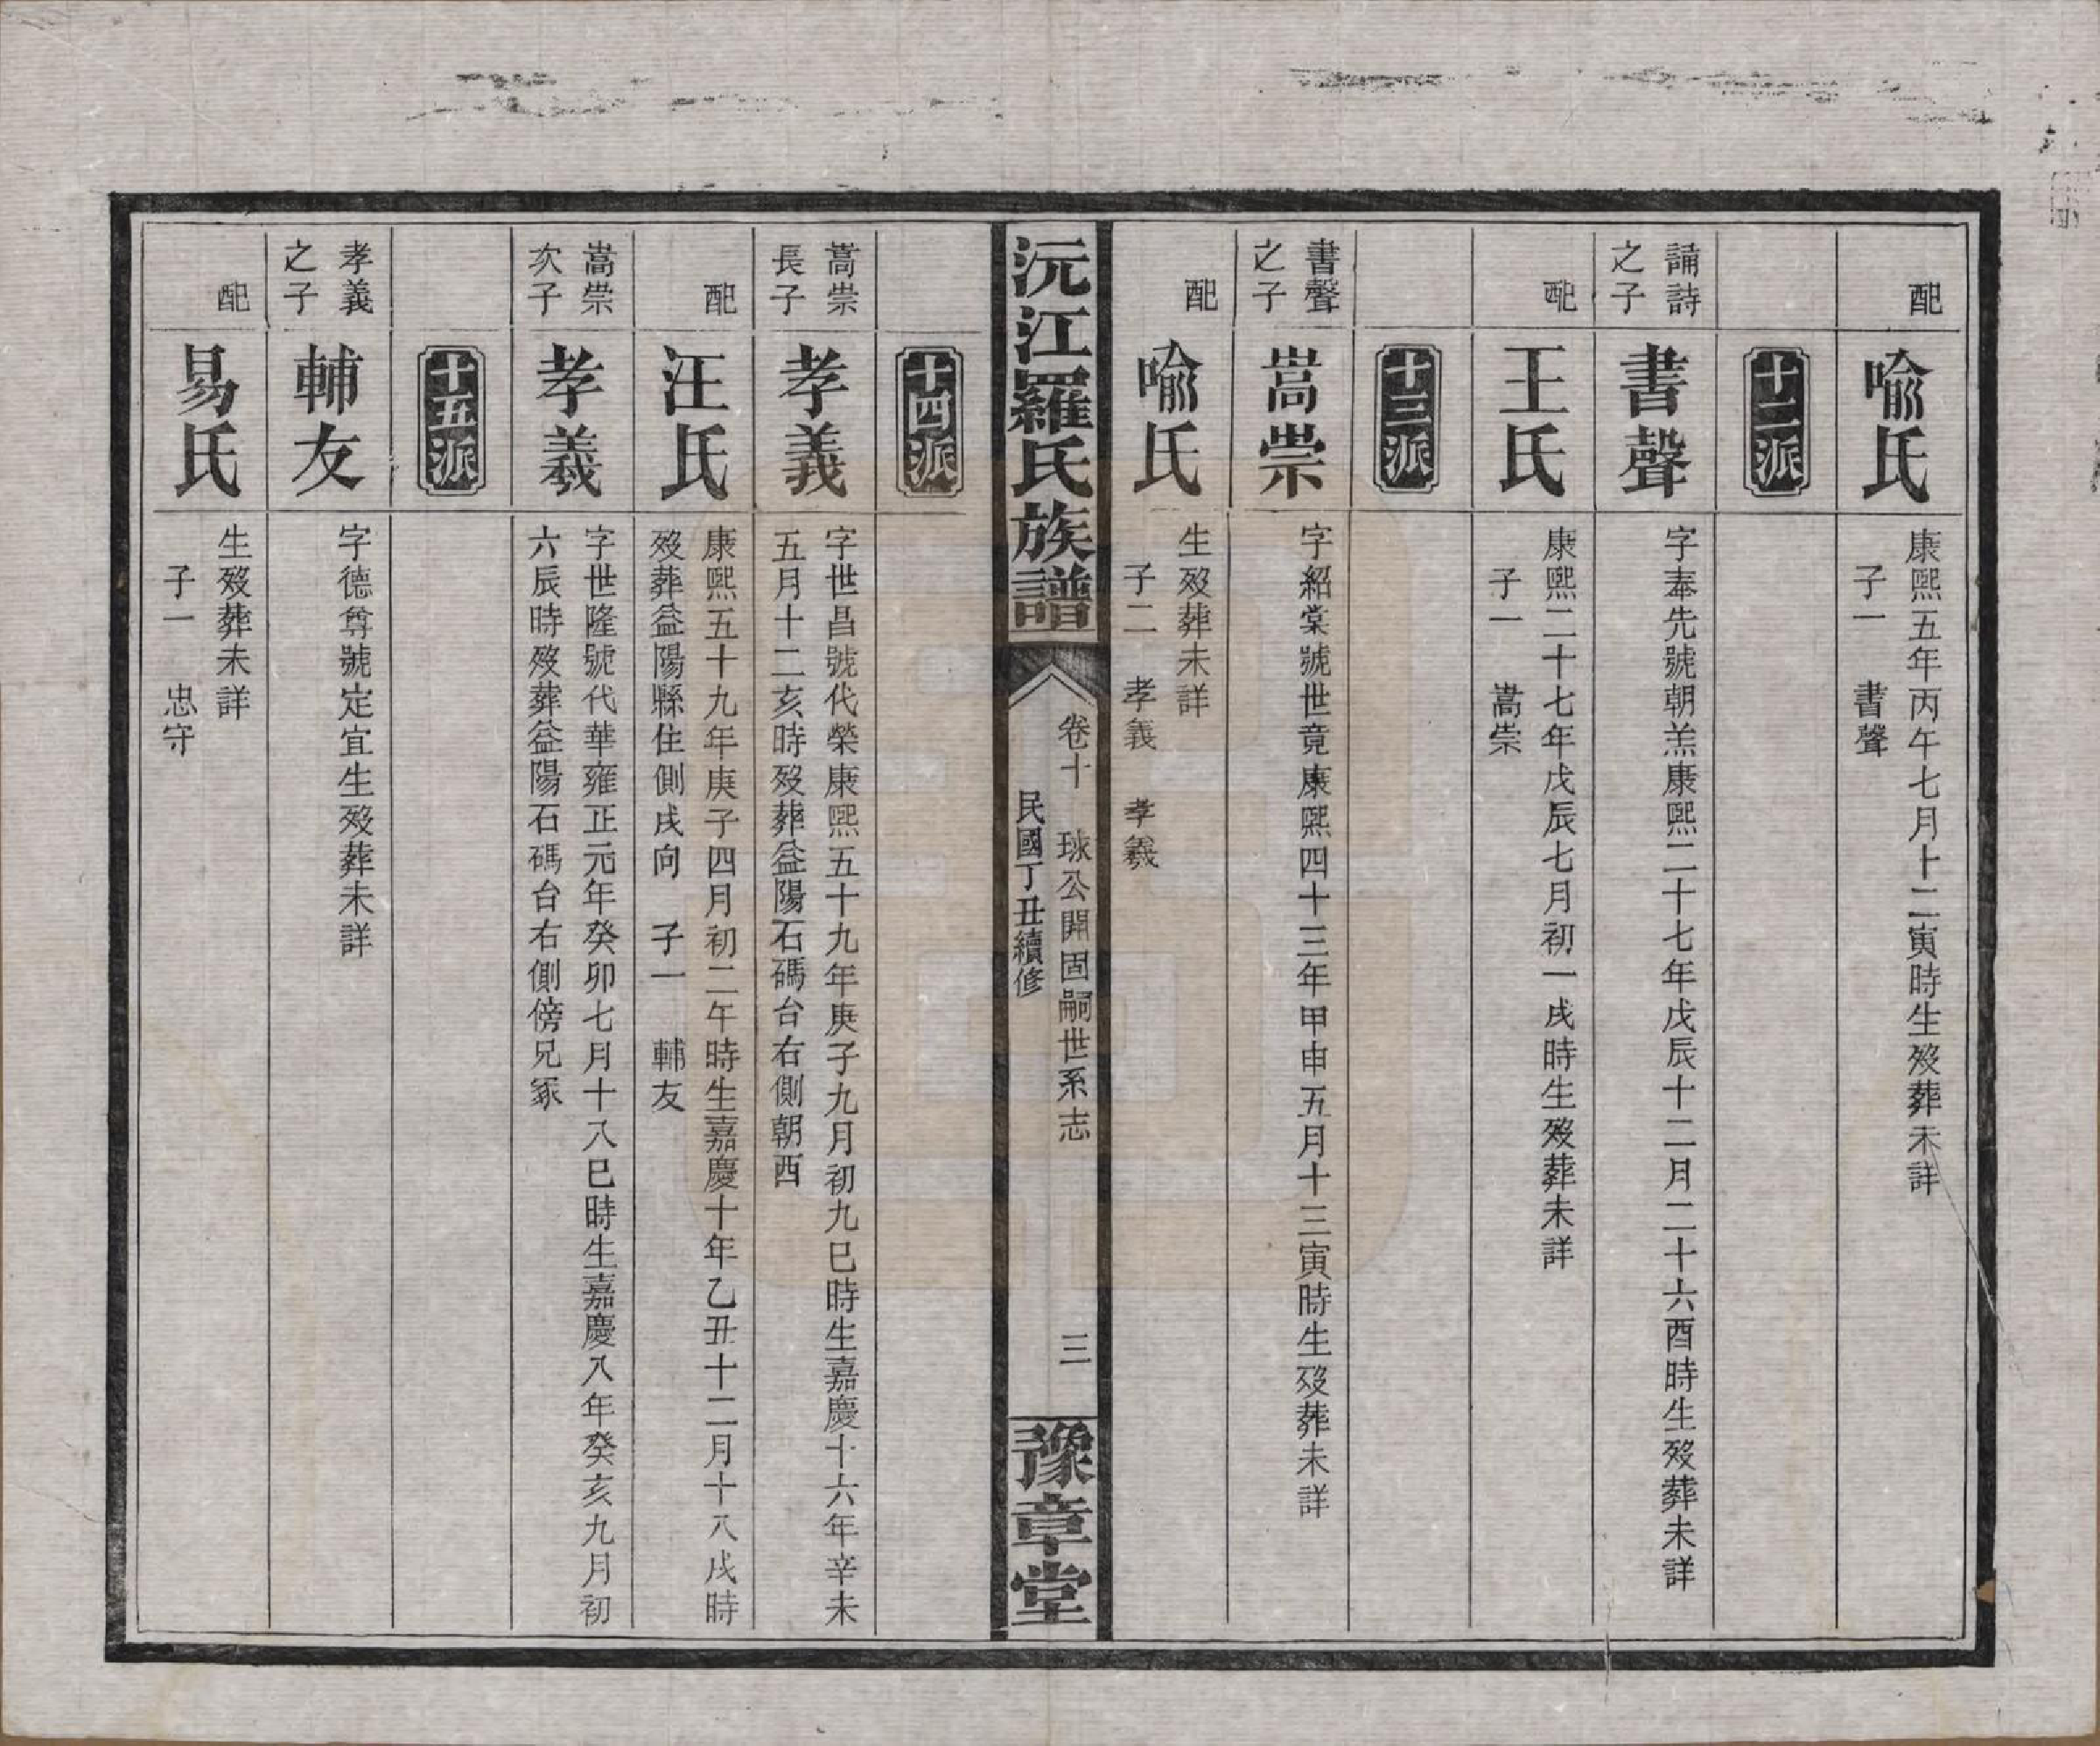 配
喻氏
康熙五年丙午七月十二寅時生歿葬未詳
子一 書聲
十二派
誦詩
之子
書聲
字奉先號朝羔康熙二十七年戊辰十二月二十六酉時生歿葬未詳
配
王氏
康熙二十七年戊辰七月初一戌時生歿葬未詳
子一 嵩崇
十三派
書聲
之子
嵩崇
字紹棠號世竟康熙四十三年甲申五月十三寅時生歿葬未詳
配
喻氏
生歿葬未詳
子二 孝義 孝羲
沅江羅氏族譜
卷十 球公開固嗣世系志
民國丁丑續修
三
豫章堂
十四派
嵩崇
長子
孝義
字世昌號代榮康熙五十九年庚子九月初九巳時生嘉慶十六年辛未
五月十二亥時歿葬益陽石碼台右側朝西
配
汪氏
康熙五十九年庚子四月初二午時生嘉慶十年乙丑十二月十八戌時
歿葬益陽縣住側戌向 子一 輔友
嵩崇
次子
孝羲
字世隆號代華雍正元年癸卯七月十八巳時生嘉慶八年癸亥九月初
六辰時歿葬益陽石碼台右側傍兄冢
十五派
孝義
之子
輔友
字德尊號定宜生歿葬未詳
配
易氏
生歿葬未詳
子一 忠守